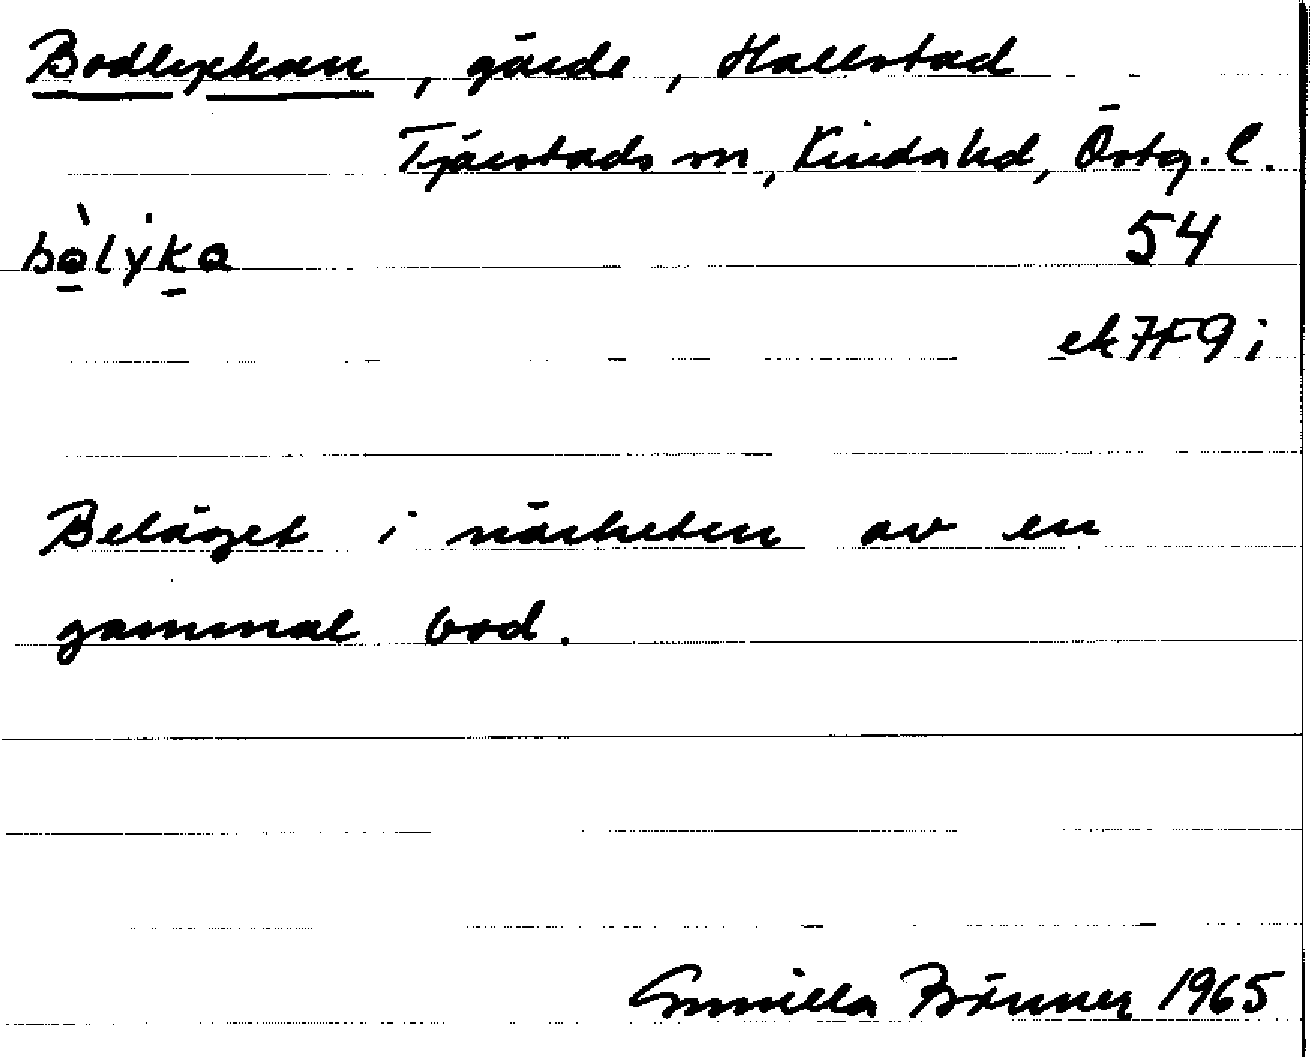 Bodlyckan, gärde, Hallstad
Tjärstads sn, Kinda hd, Östg. l.
bòlýka
54
ek 7F9i
Beläget i närheten av en
gammal bod.
Gunilla 1965